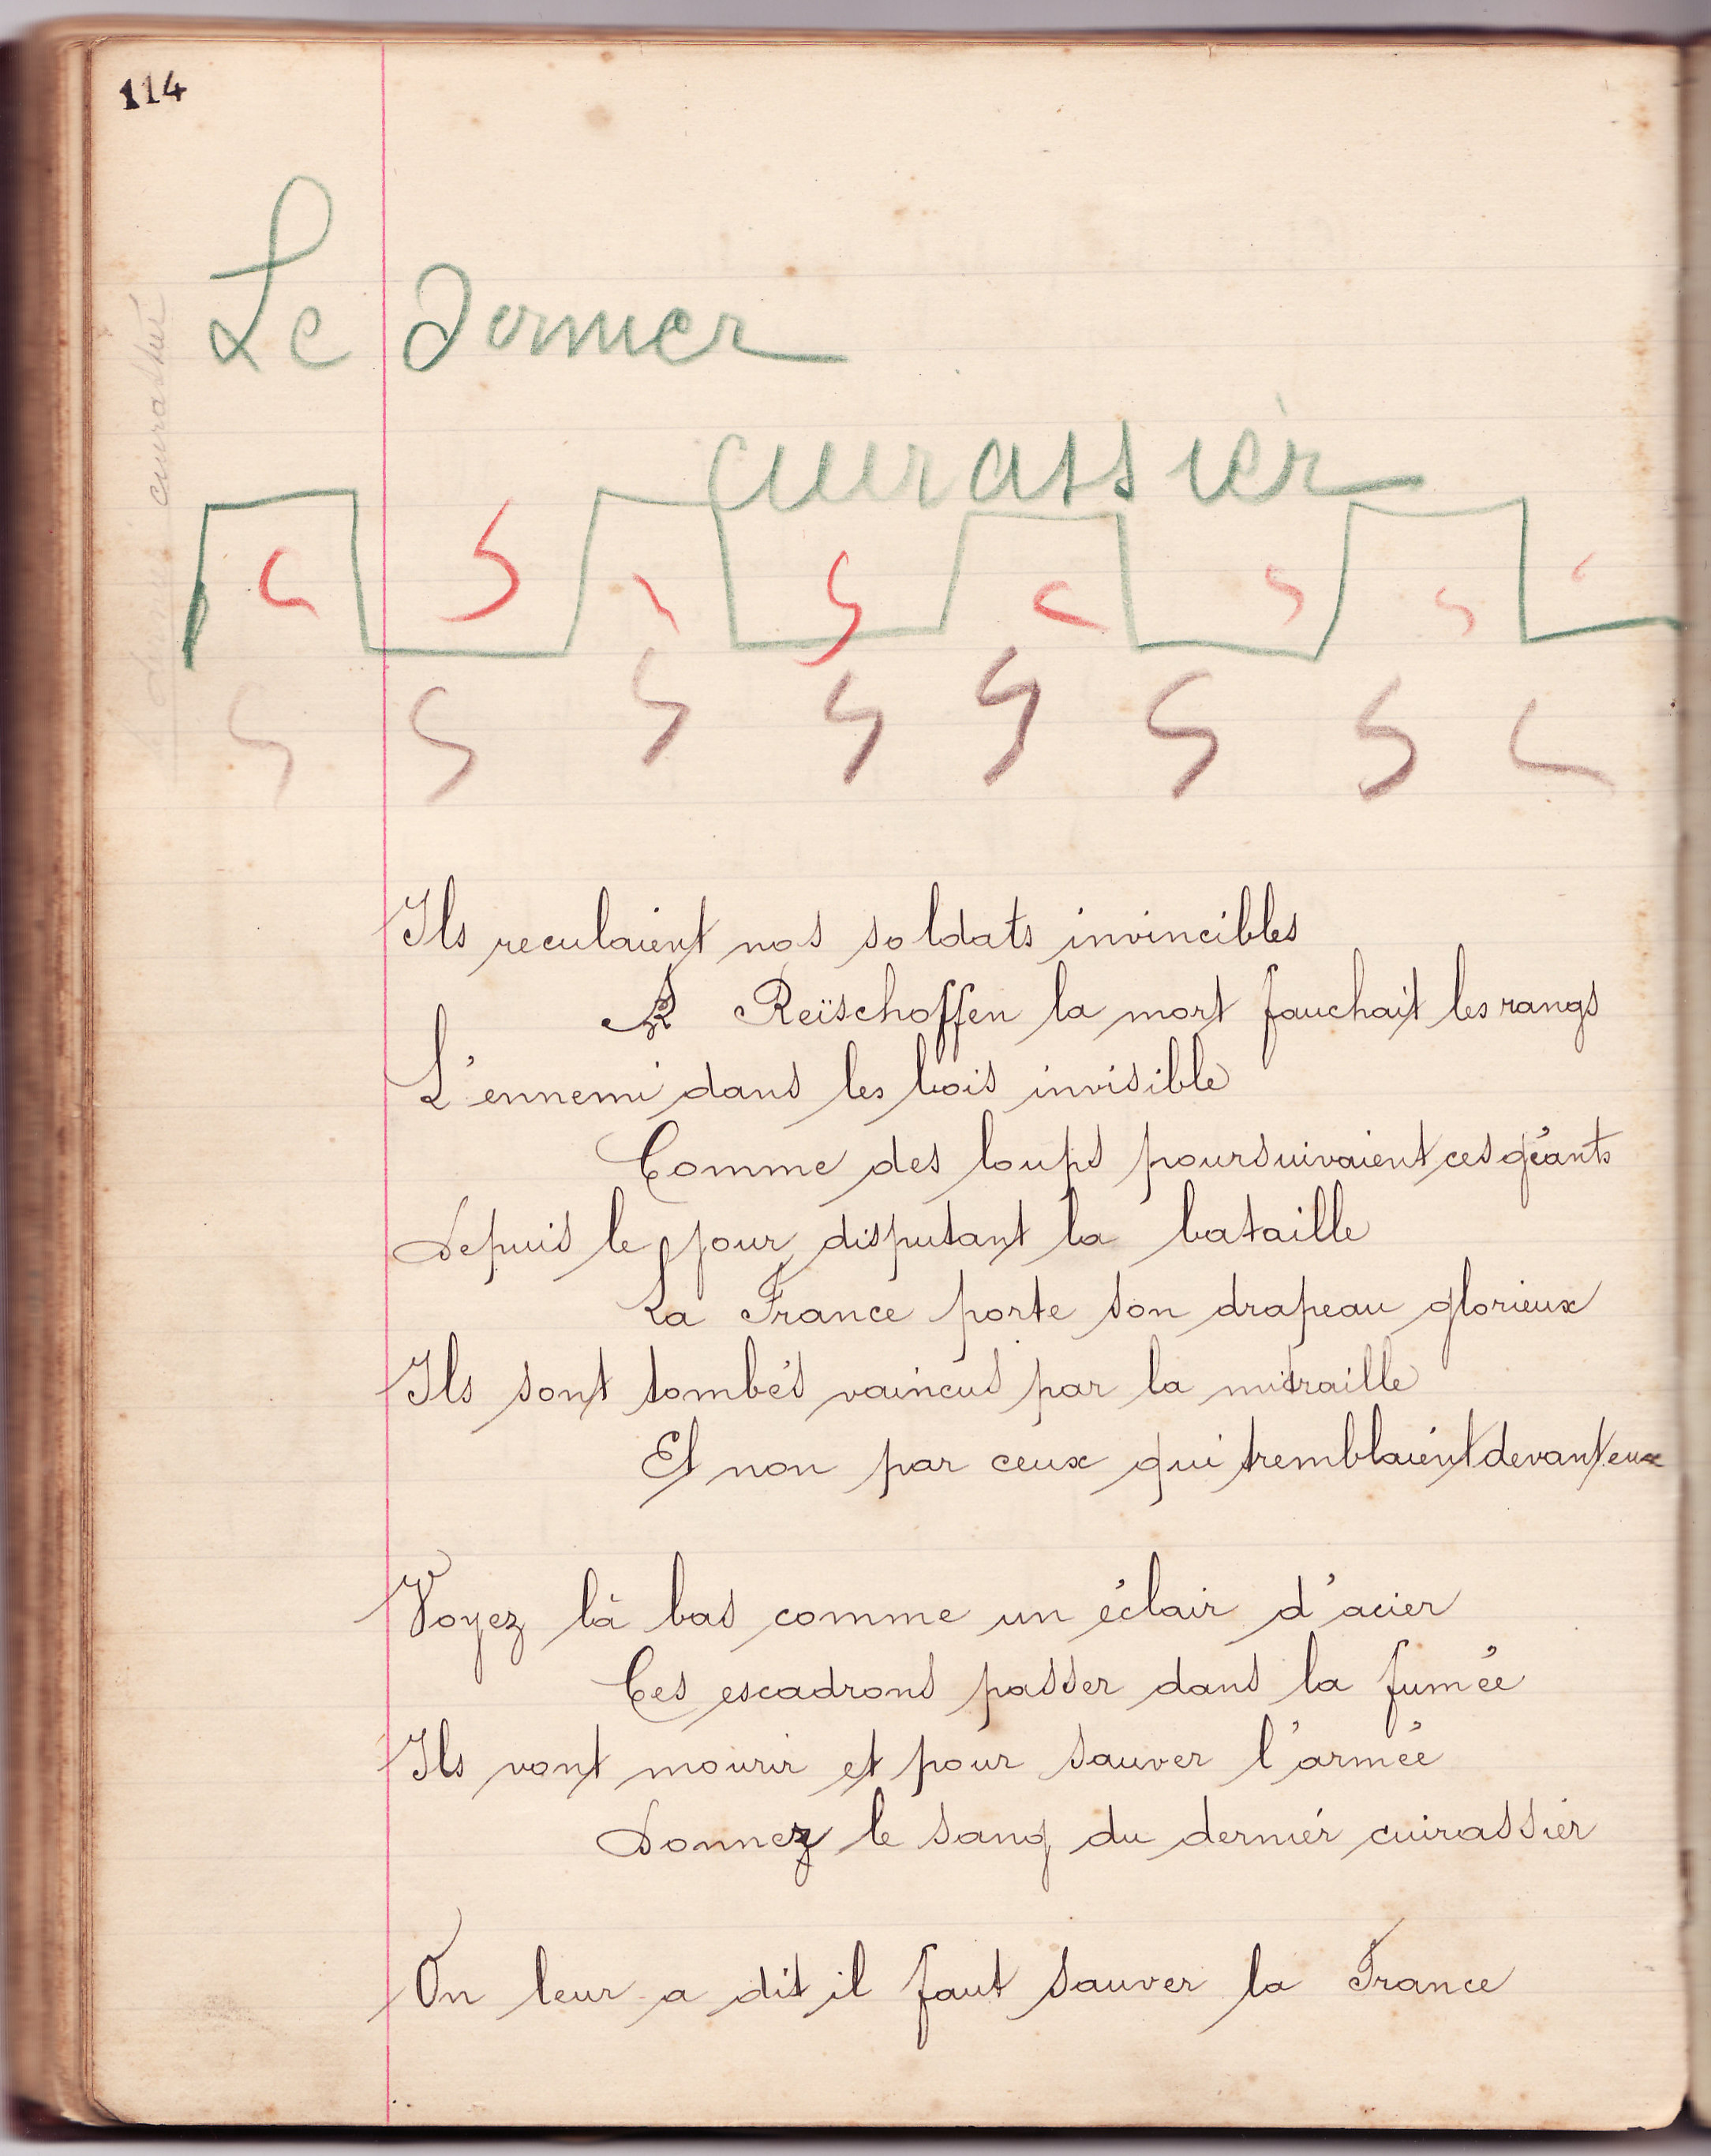 114
Le dernier
cuirassier
Ils reculaient nos soldats invincibles
A Reïschoffen la mort fauchait les rangs
L'ennemi dans les bois invisible
Comme des loups poursuivaient ces géants
Depuis le jour disputant la bataille
La France porte son drapeau glorieux
Ils sont tombés vaincus par la mitraille
Et non par ceux qui tremblaient devant eux
Voyez là bas comme un éclair d'acier
Ces escadrons passer dans la fumée
Ils vont mourir et pour sauver l'armée
Donnez le sang du dernier cuirassier
On leur a dit il faut sauver la France